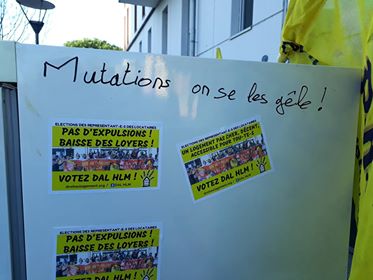 Mutations on se les gêle !
ELECTIONS DES REPRESENTANT·E·S DES LOCATAIRES
PAS D'EXPULSIONS !
BAISSE DES LOYERS !
VOTEZ DAL HLM !
droitaulogement.org / DAL HLM
ELECTIONS DES REPRESENTANT·E·S DES LOCATAIRES
UN LOGEMENT PAS CHER, DÉCENT,
ACCESSIBLE POUR TOU·TE·S
VOTEZ DAL HLM !
droitaulogement.org / DAL HLM
ELECTIONS DES REPRESENTANT·E·S DES LOCATAIRES
PAS D'EXPULSIONS !
BAISSE DES LOYERS !